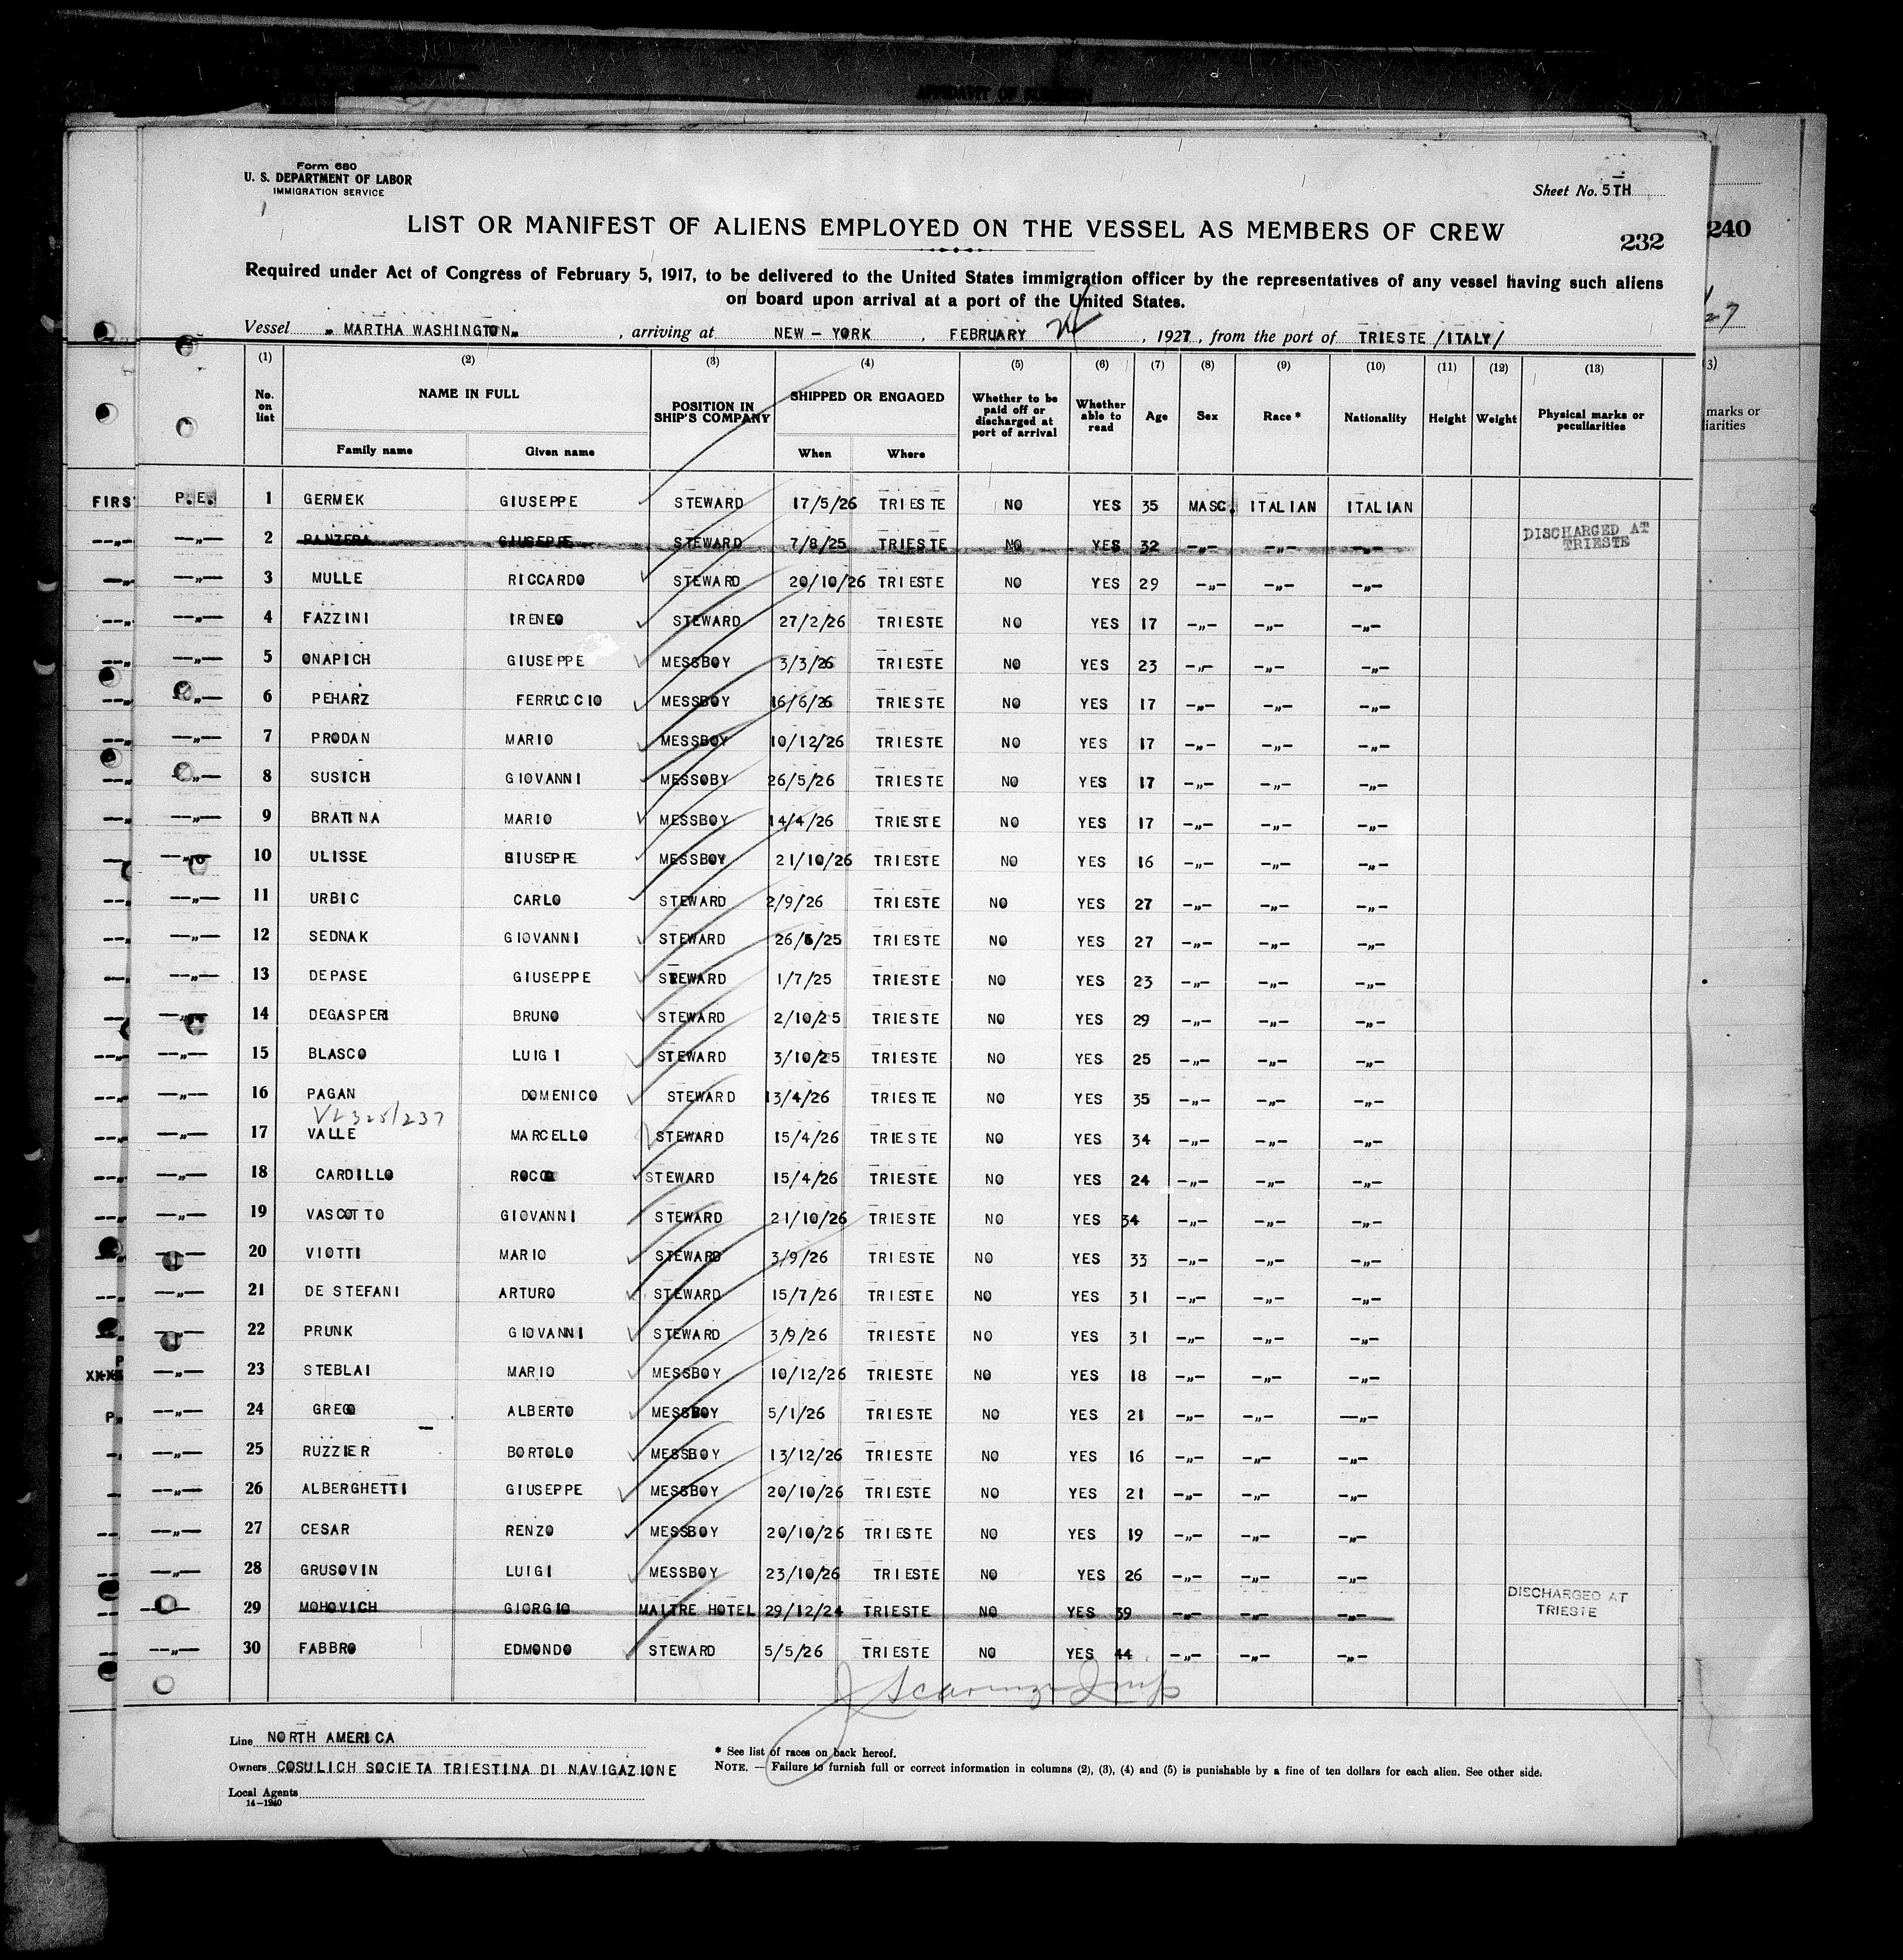 AFFIDAVIT OF SURGEON
Form 680
U. S. DEPARTMENT OF LABOR
IMMIGRATION SERVICE
Sheet No. 5TH
LIST OR MANIFEST OF ALIENS EMPLOYED ON THE VESSEL AS MEMBERS OF CREW
232
240
Required under Act of Congress of February 5, 1917, to be delivered to the United States immigration officer by the representatives of any vessel having such aliens
on board upon arrival at a port of the United States.
Vessel „ MARTHA WASHINGTON„ , arriving at NEW – YORK , FEBRUARY , 1927 , from the port of TRIESTE /ITALY/
(1) (2) (3) (4) (5) (6) (7) (8) (9) (10) (11) (12) (13)
No. on list NAME IN FULL Family name Given name POSITION IN SHIP'S COMPANY SHIPPED OR ENGAGED When Where Whether to be paid off or discharged at port of arrival Whether able to read Age Sex Race * Nationality Height Weight Physical marks or peculiarities
marks or
iarities
FIRS P.E. 1 GERMEK GIUSEPPE STEWARD 17/5/26 TRIESTE NO YES 35 MASC. ITALIAN ITALIAN
—„— 2 PANZERA GIUSEPPE STEWARD 7/8/25 TRIESTE NO YES 32 —„— —„— —„— DISCHARGED AT TRIESTE
—„— 3 MULLE RICCARDO STEWARD 20/10/26 TRIESTE NO YES 29 —„— —„— —„—
—„— 4 FAZZINI IRENEO STEWARD 27/2/26 TRIESTE NO YES 17 —„— —„— —„—
—„— 5 ONAPICH GIUSEPPE MESSBOY 3/3/26 TRIESTE NO YES 23 —„— —„— —„—
—„— 6 PEHARZ FERRUCCIO MESSBOY 16/6/26 TRIESTE NO YES 17 —„— —„— —„—
—„— 7 PRODAN MARIO MESSBOY 10/12/26 TRIESTE NO YES 17 —„— —„— —„—
—„— 8 SUSICH GIOVANNI MESSOBY 26/5/26 TRIESTE NO YES 17 —„— —„— —„—
—„— 9 BRATINA MARIO MESSBOY 14/4/26 TRIESTE NO YES 17 —„— —„— —„—
—„— 10 ULISSE GIUSEPPE MESSBOY 21/10/26 TRIESTE NO YES 16 —„— —„— —„—
—„— 11 URBIC CARLO STEWARD 2/9/26 TRIESTE NO YES 27 —„— —„— —„—
—„— 12 SEDNAK GIOVANNI STEWARD 26/6/25 TRIESTE NO YES 27 —„— —„— —„—
—„— 13 DEPASE GIUSEPPE STEWARD 1/7/25 TRIESTE NO YES 23 —„— —„— —„—
—„— 14 DEGASPERI BRUNO STEWARD 2/10/25 TRIESTE NO YES 29 —„— —„— —„—
—„— 15 BLASCO LUIGI STEWARD 3/10/25 TRIESTE NO YES 25 —„— —„— —„—
—„— 16 PAGAN DOMENICO STEWARD 13/4/26 TRIESTE NO YES 35 —„— —„— —„—
VL325/237
—„— 17 VALLE MARCELLO STEWARD 15/4/26 TRIESTE NO YES 34 —„— —„— —„—
—„— 18 CARDILLO ROCCO STEWARD 15/4/26 TRIESTE NO YES 24 —„— —„— —„—
—„— 19 VASCOTTO GIOVANNI STEWARD 21/10/26 TRIESTE NO YES 34 —„— —„— —„—
—„— 20 VIOTTI MARIO STEWARD 3/9/26 TRIESTE NO YES 33 —„— —„— —„—
—„— 21 DE STEFANI ARTURO STEWARD 15/7/26 TRIESTE NO YES 31 —„— —„— —„—
—„— 22 PRUNK GIOVANNI STEWARD 3/9/26 TRIESTE NO YES 31 —„— —„— —„—
—„— 23 STEBLAI MARIO MESSBOY 10/12/26 TRIESTE NO YES 18 —„— —„— —„—
—„— 24 GREGO ALBERTO MESSBOY 5/1/26 TRIESTE NO YES 21 —„— —„— —„—
—„— 25 RUZZIER BORTOLO MESSBOY 13/12/26 TRIESTE NO YES 16 —„— —„— —„—
—„— 26 ALBERGHETTI GIUSEPPE MESSBOY 20/10/26 TRIESTE NO YES 21 —„— —„— —„—
—„— 27 CESAR RENZO MESSBOY 20/10/26 TRIESTE NO YES 19 —„— —„— —„—
—„— 28 GRUSOVIN LUIGI MESSBOY 23/10/26 TRIESTE NO YES 26 —„— —„— —„—
—„— 29 MOHOVICH GIORGIO MAITRE HOTEL 29/12/24 TRIESTE NO YES 39 —„— —„— —„— DISCHARGED AT TRIESTE
—„— 30 FABBRO EDMONDO STEWARD 5/5/26 TRIESTE NO YES 44 —„— —„— —„—
Line NORTH AMERICA
Owners COSULICH SOCIETA TRIESTINA DI NAVIGAZIONE
Local Agents
14—1240
* See list of races on back hereof.
NOTE. — Failure to furnish full or correct information in columns (2), (3), (4) and (5) is punishable by a fine of ten dollars for each alien. See other side.